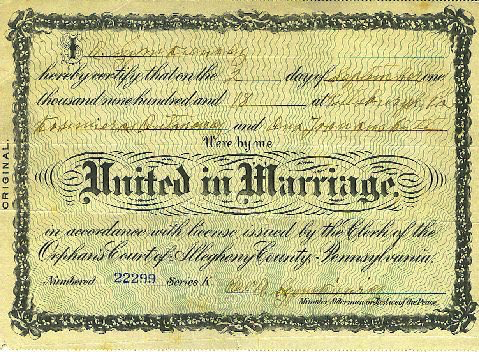 I
hereby certify that on the 2 day of September one
thousand nine hundred and 13 at Pittsburgh, Pa
and
Were by me
United in Marriage.
in accordance with license issued by the Clerk of the
Orphans Court of Allegheny County, Pennsylvania.
Numbered 22299 Series K
Minister, Alderman or Justice of the Peace.
ORIGINAL.